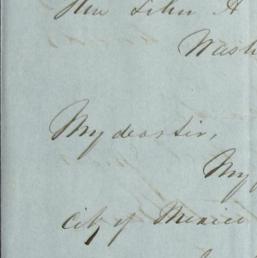 Hon John A
Wash
My dear Sir,
My
City of Mexico